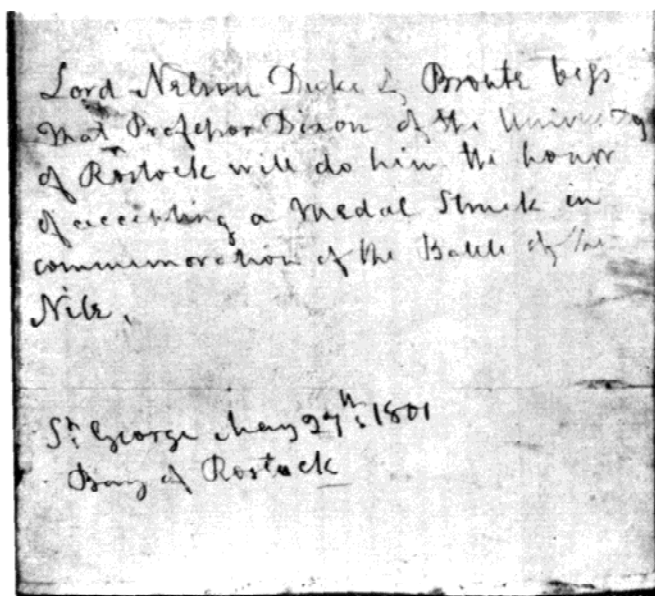 Lord Nelson Duke of Bronte begs
that Professor Dixon of the University
of Rostock will do him the honor
of accepting a Medal Struck in
commemoration of the Battle of the
Nile.
St. George May 27th: 1801
Bay of Rostock